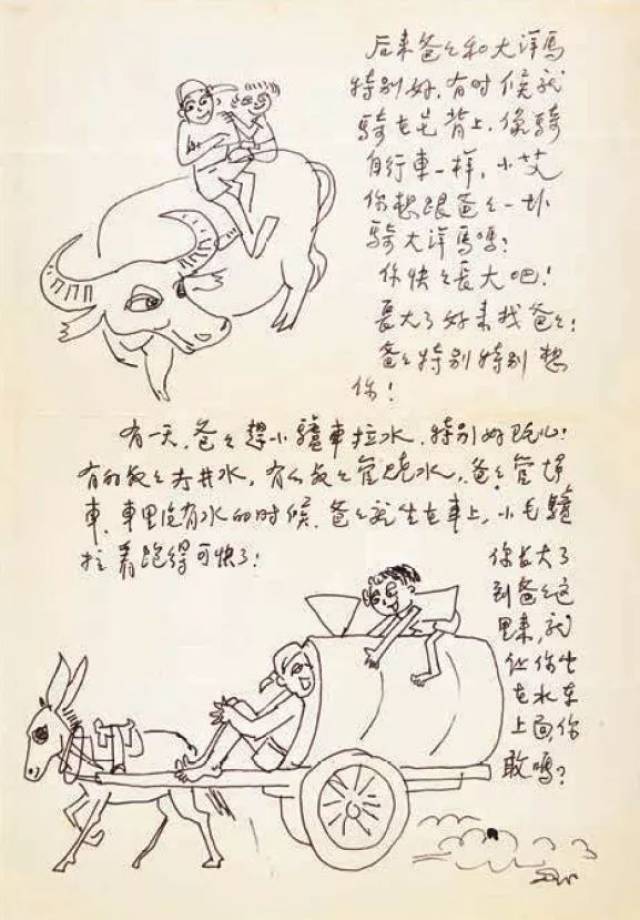 后来爸々和大洋馬
特别好,有时候就
騎在它背上,像騎
自行車一样,小艾
你想跟爸々一块
騎大洋馬嗎?
你快々長大吧!
長大了好来找爸々!
爸々特别特别想
你!
有一天,爸々趕小驢車拉水,特别好玩!
有的叔々打井水,有的叔々管烧水,爸々管趕
車,車里没有水的时候,爸々就坐在車上,小毛驢
拉着跑得可快了!
你长大了
到爸々这
里来,就
让你坐
在水车
上面,你
敢嗎?